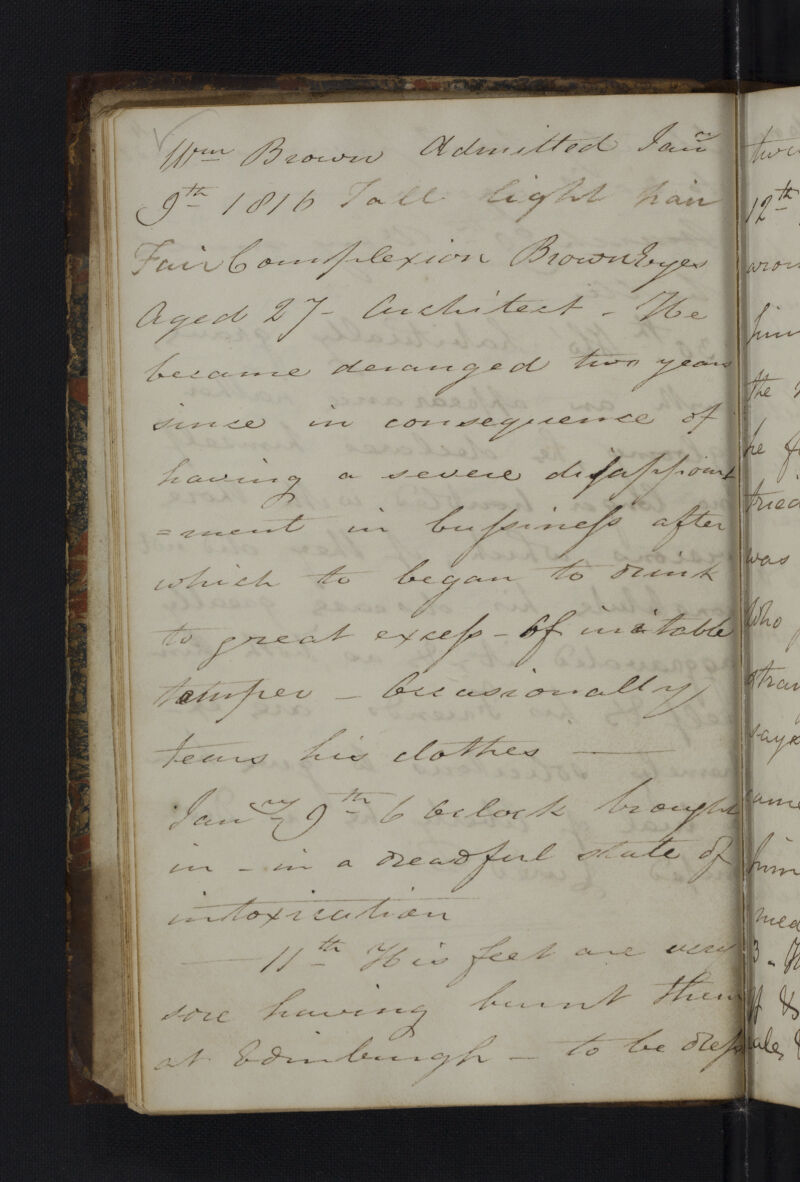 Wm Brown Admitted Jany
9th 1816 Tall light hair
Fair Complexion Brown Eyes
Aged 27 - Architect - He
became deranged two years
since in consequence of
having a severe disappoint
=ment in bussiness after
which to began to drink
to great excess - Of iritable
temper - Occasionally
tears his clothes —
Jany 9th 6 Oclock brought
in - in a dreadful state of
intoxication
— 11th His feet are very
sore having burnt them
at Edinburgh - to be dress
12th
the
he
tried
was
who
says
him